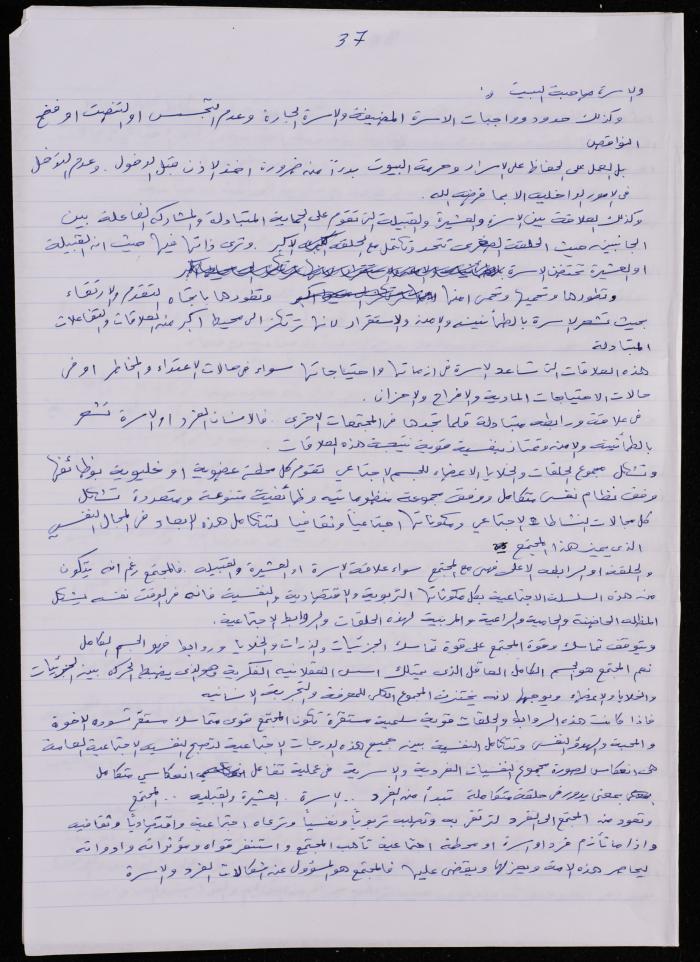 37
والاسرة صاحبة البيت
وكذلك حدود وواجبات الاسرة المضيفة والاسرة الجارة وعدم التجسس او التنصت او فضح
النواقص
بل العمل على الحفاظ على الاسرار وحرمة البيوت بدءاً من ضرورة اخذ الاذن قبل الدخول. وعدم التدخل
في الامور الداخلية الا بما فرضه الله.
وكذلك العلاقة بين الاسرة والعشيرة والقبيلة التي تقوم على الحماية المتبادلة والمشاركة الفاعلة بين
الجانبين حيث الحلقة الصغرى تتحد وتتكامل مع الحلقة الاكبر. وترى ذاتها فيها حيث ان القبيلة
او العشيرة تحتضن الاسرة
وتطورها وتحميها وتحمي امنها وتقودها باتجاه التقدم والارتقاء
بحيث تشعر الاسرة بالطمأنينة والامن والاستقرار لانها ترتكز الى محيط اكبر من العلاقات والتفاعلات
المتبادلة
هذه العلاقات التي تساعد الاسرة في ازماتها واحتياجاتها سواء في حالات الاعتداء والمخاطر او في
حالات الاحتياجات المادية والافراح والاحزان.
في علاقة ورابطة متبادلة قلما تجدها في المجتمعات الاخرى. فالانسان الفرد او الاسرة تشعر
بالطمأنينة والامن وتمتاز بنفسية قوية نتيجة هذه العلاقات.
وتشكل مجموع الحلقات والخلايا الاعضاء للجسم الاجتماعي تقوم كل محطة عضوية او خليوية بوظائفها
وفق نظام نفسي متكامل ووفق مجموعة منظوماتية وظائفية متنوعة ومتعددة تشكل
كل مجالات النشاط الاجتماعي ومكوناتها اجتماعياً وثقافيا لتتكامل هذه الابعاد في المجال النفسي
الذي يميز هذا المجتمع
والحلقة او الرابطة الاعلى فهي مع المجتمع سواء علاقة الاسرة او العشيرة والقبيلة. فالمجتمع رغم انه يتكون
من هذه السلسلة الاجتماعية بكل مكوناتها التربوية والاقتصادية والنفسية فانه في الوقت نفسه يشكل
المظلة الحاضنة والحامية والراعية والمربية لهذه الحلقات والروابط الاجتماعية.
ويتوقف تماسك وقوة المجتمع على قوة تماسك الجزئيات والذرات والخلايا وروابط الجسم الكامل
نعم المجتمع هو الجسم الكامل العاقل الذي يمتلك اسس العقلانية الفكرية وهو الذي يضبط الحركة بين الجزئيات
والخلايا والاعضاء ويوجهها لانه يختزن المجموع الكلي للمعرفة والتجربة الانسانية
فاذا كانت هذه الروابط والحلقات قوية سليمة مستقرة تكون المجتمع قوي متماسك مستقر تسوده الاخوة
والمحبة والهدوء النفسي وتتكامل النفسية بين جميع هذه الدرجات الاجتماعية لتصبح النفسية الاجتماعية العامة
هي انعكاس لصورة مجموع النفسيات الفردية والاسرية في عملية تفاعل انعكاسي متكامل
بمعنى يدور في حلقة متكاملة تبدأ من الفرد .. الاسرة .. العشيرة والقبيلة .. المجتمع
وتعود من المجتمع الى الفرد لترتقي به وتصلب تربوياً ونفسياً وترعاه اجتماعية واقتصادياً وثقافيه
واذا ما تأزم فرد او اسرة او محطة اجتماعية تأهب المجتمع واستنفر قواه ومؤثراته وادواته
ليحاصر هذه الازمة ويعزلها ويقضي عليها فالمجتمع هو المسؤول عن اشكالات الفرد والاسرة